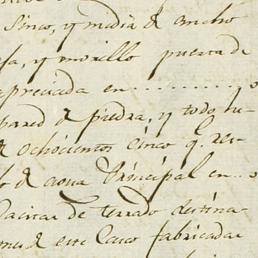 Sinco, y media de ancho
sa, y morillo puerta de
apreciada en . . . . . . . . . .
pared de piedra, y todo su
ochocientos cinco q.e
de agua Principal en . . .
de terrado
este Caso fabricadas